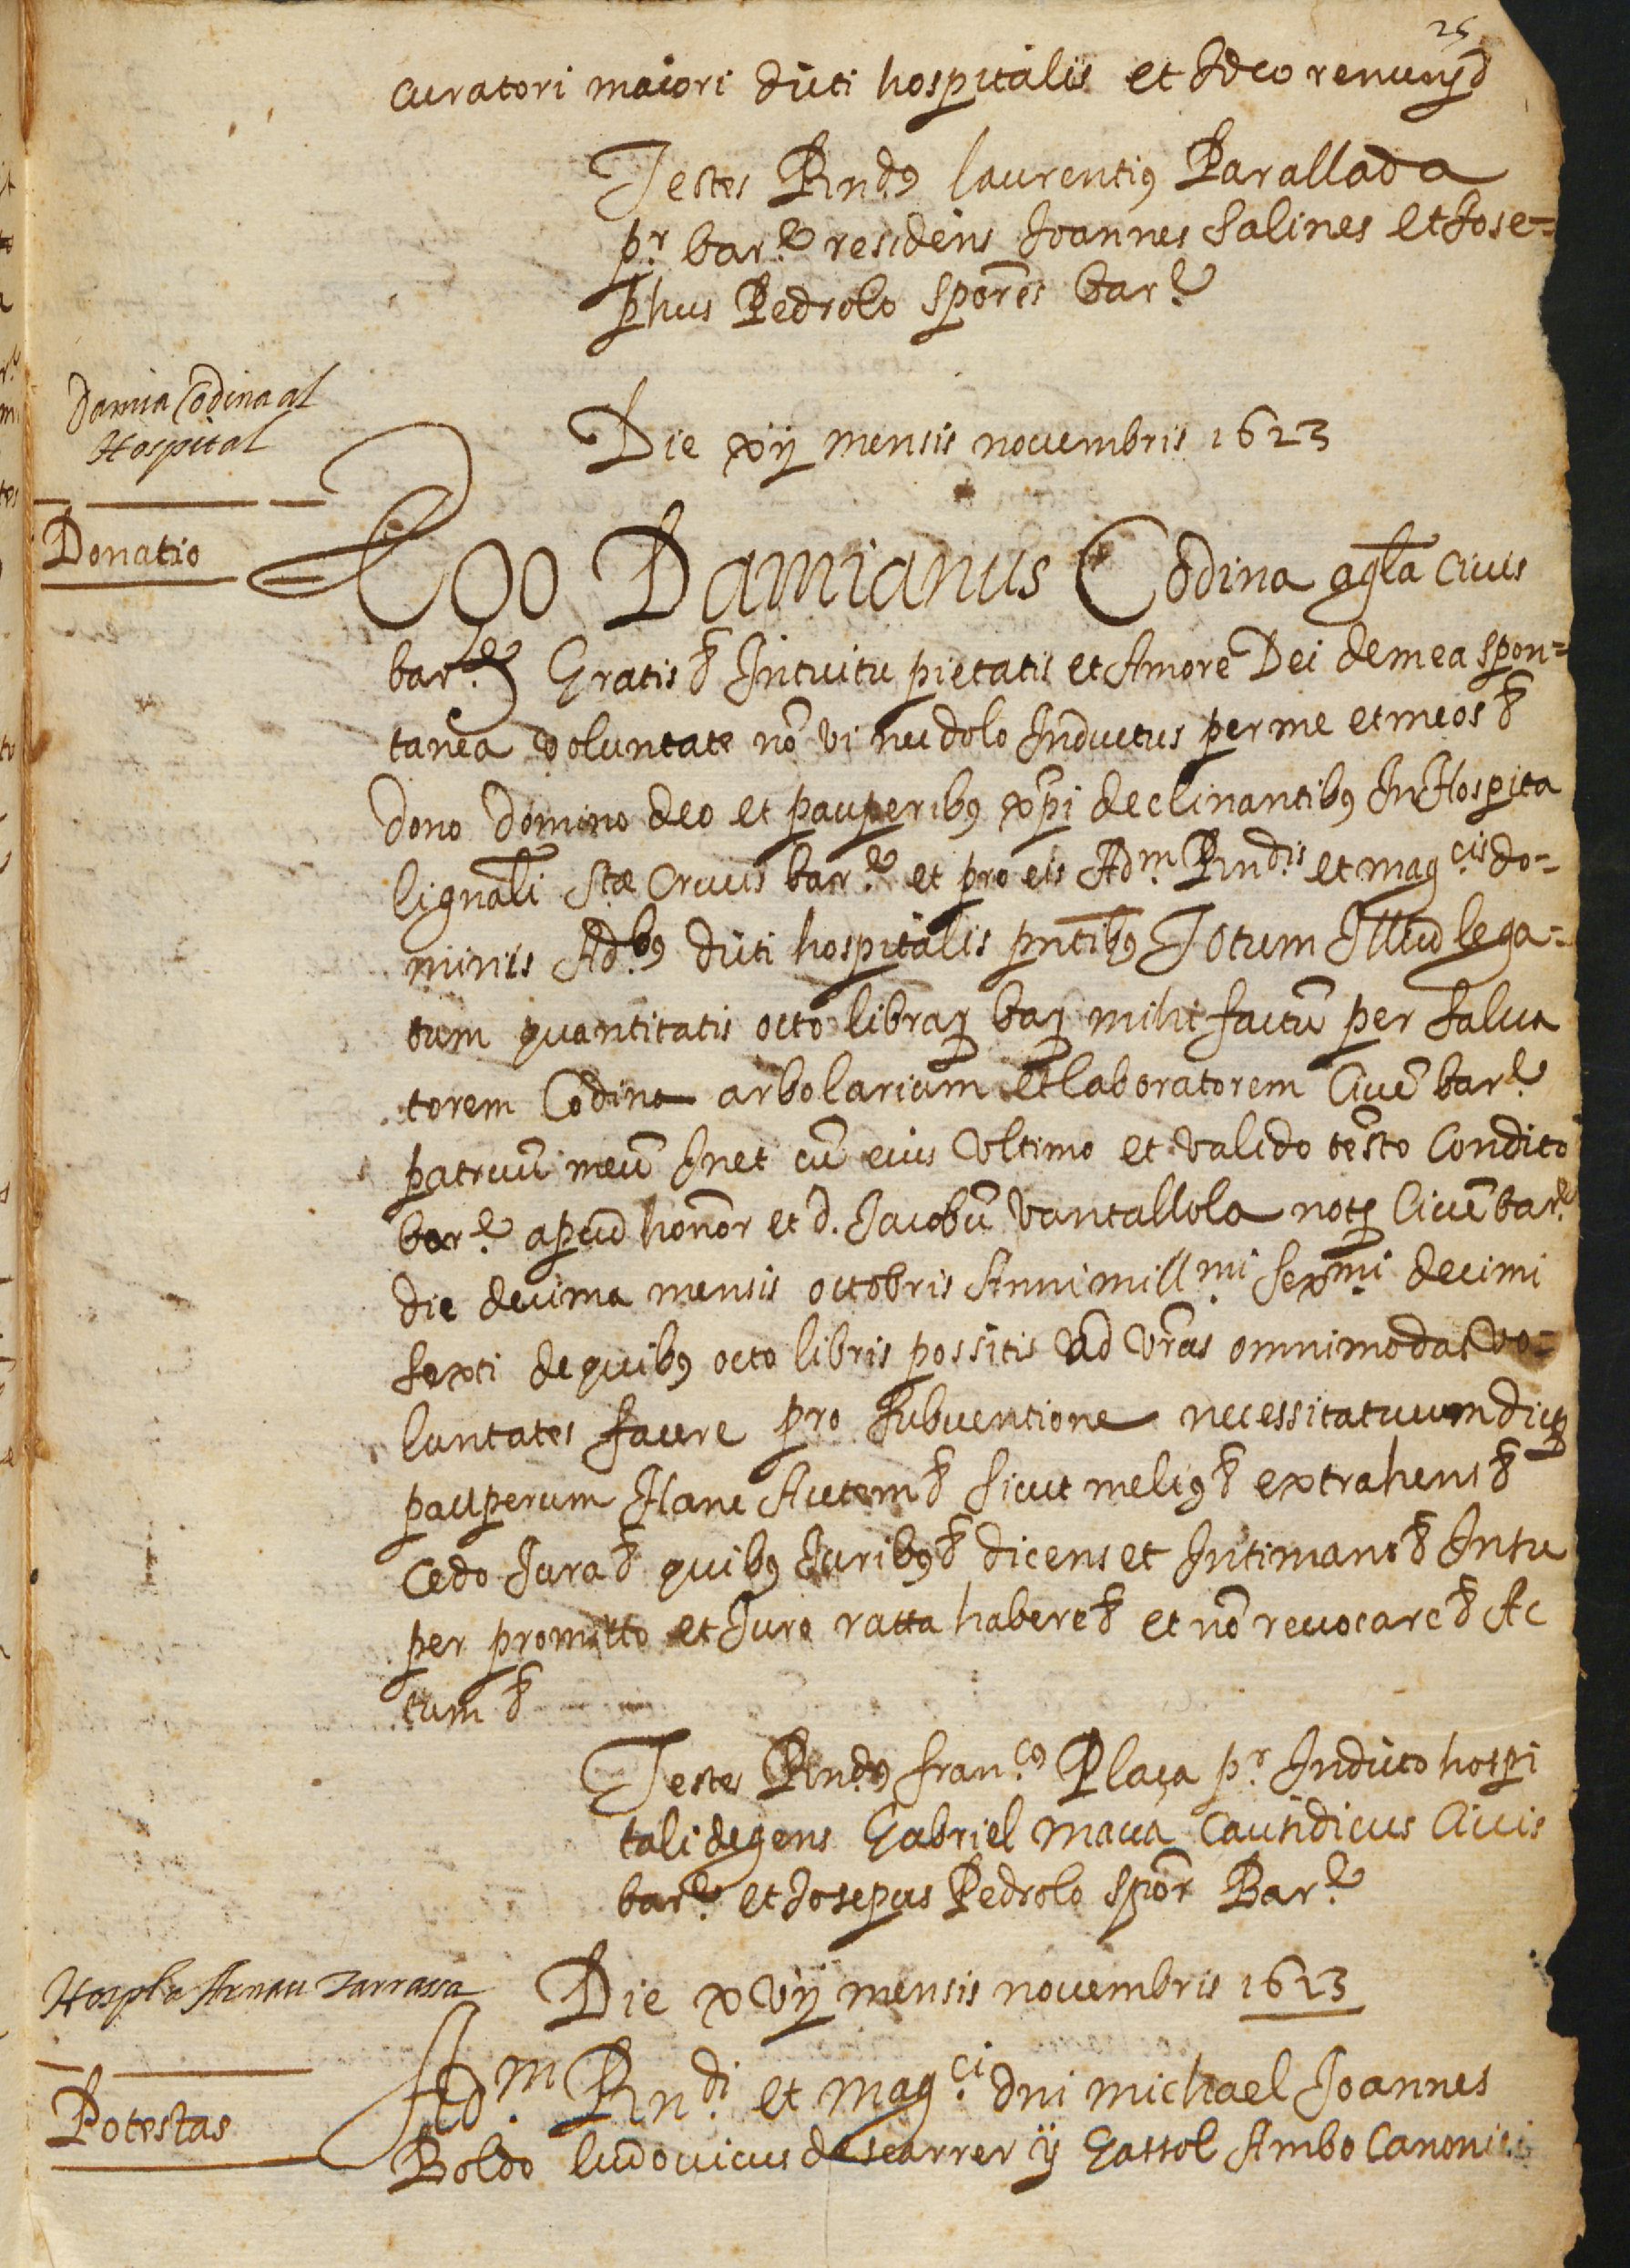 25
curatori maiori dicti hospitalis et Ideo renun
Testes Rndus laurentius Parallada
pr barne residens Joannes Salines et Jose=
phus Pedrolo spores barne
Damia Codina al
Hospital
Die xij mensis novembris 1623
Donatio
Ego Damianus Codina agla Civis
barne Gratis & Intuitu pietatis et Amore Dei de mea spon=
tanea voluntate no vi nec dolo Inductus per me et meos &
dono domino deo et pauperibus xpi declinantibus In Hospita
li gnali Stae Crucis barne et pro eis Adm Rndis et magcis do=
minis Adbus dicti hospitalis pntibus Totum Illud lega=
tum quantitatis octo librar bar mihi factu per Salva
torem Codina arbolarium et laboratorem Cive barne
patruu meu Inet cu eius Ultimo et valido testo Condito
barne apud honor et d. Jacobu Vantallola not Cive barne
die decima mensis octobris Anni millmi sexmi decimi
sexti de quibus octo libris possitis ad vras omnimodas vo=
luntates facere pro subventione necessitatuum dict
pauperum Hanc Autem & sicut melius & extrahens &
Cedo Jura & quibus Juribus & dicens et Intimans & Insu
per promitto et Juro ratta habere & et no revocare & Ac
tum &
Testes Rndus francus Plaça pr In dicto hospi
tali degens Gabriel maua Causidicus Civis
barne et Josepus Pedrolo spor Barne
Hospl a Arnau Tarrassa
Die xvij mensis novembris 1623
Potestas
Adm Rndi et magci dni michael Joannes
Boldo ludovicus descarrer ij Gassol Ambo Canonici